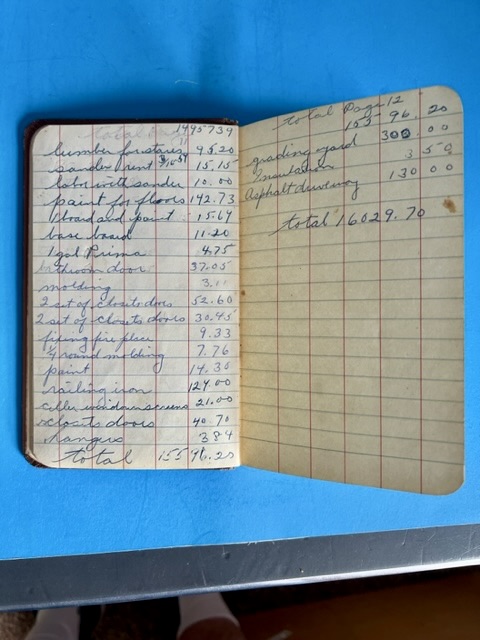 total Page 11 1495739
lumber for stairs 95.20
sander rent 15.15
labor with sander 10.00
paint for floors 142.73
board and paint 15.64
base board 11.20
1 gal Prima 4.75
bathroom door 37.05
molding 3.
2 set of closets doors 52.60
2 set of closets doors 30.45
fixing fire place 9.33
4 round molding 7.76
paint 14.30
railing iron 124.00
celler window screens 21.00
closets doors 40.70
hangers 3 84
total 155 96.20
total Page 12
155 96. 20
grading yard 300.00
Insulation 3 50
Asphalt driveway 130 00
total 16029.70